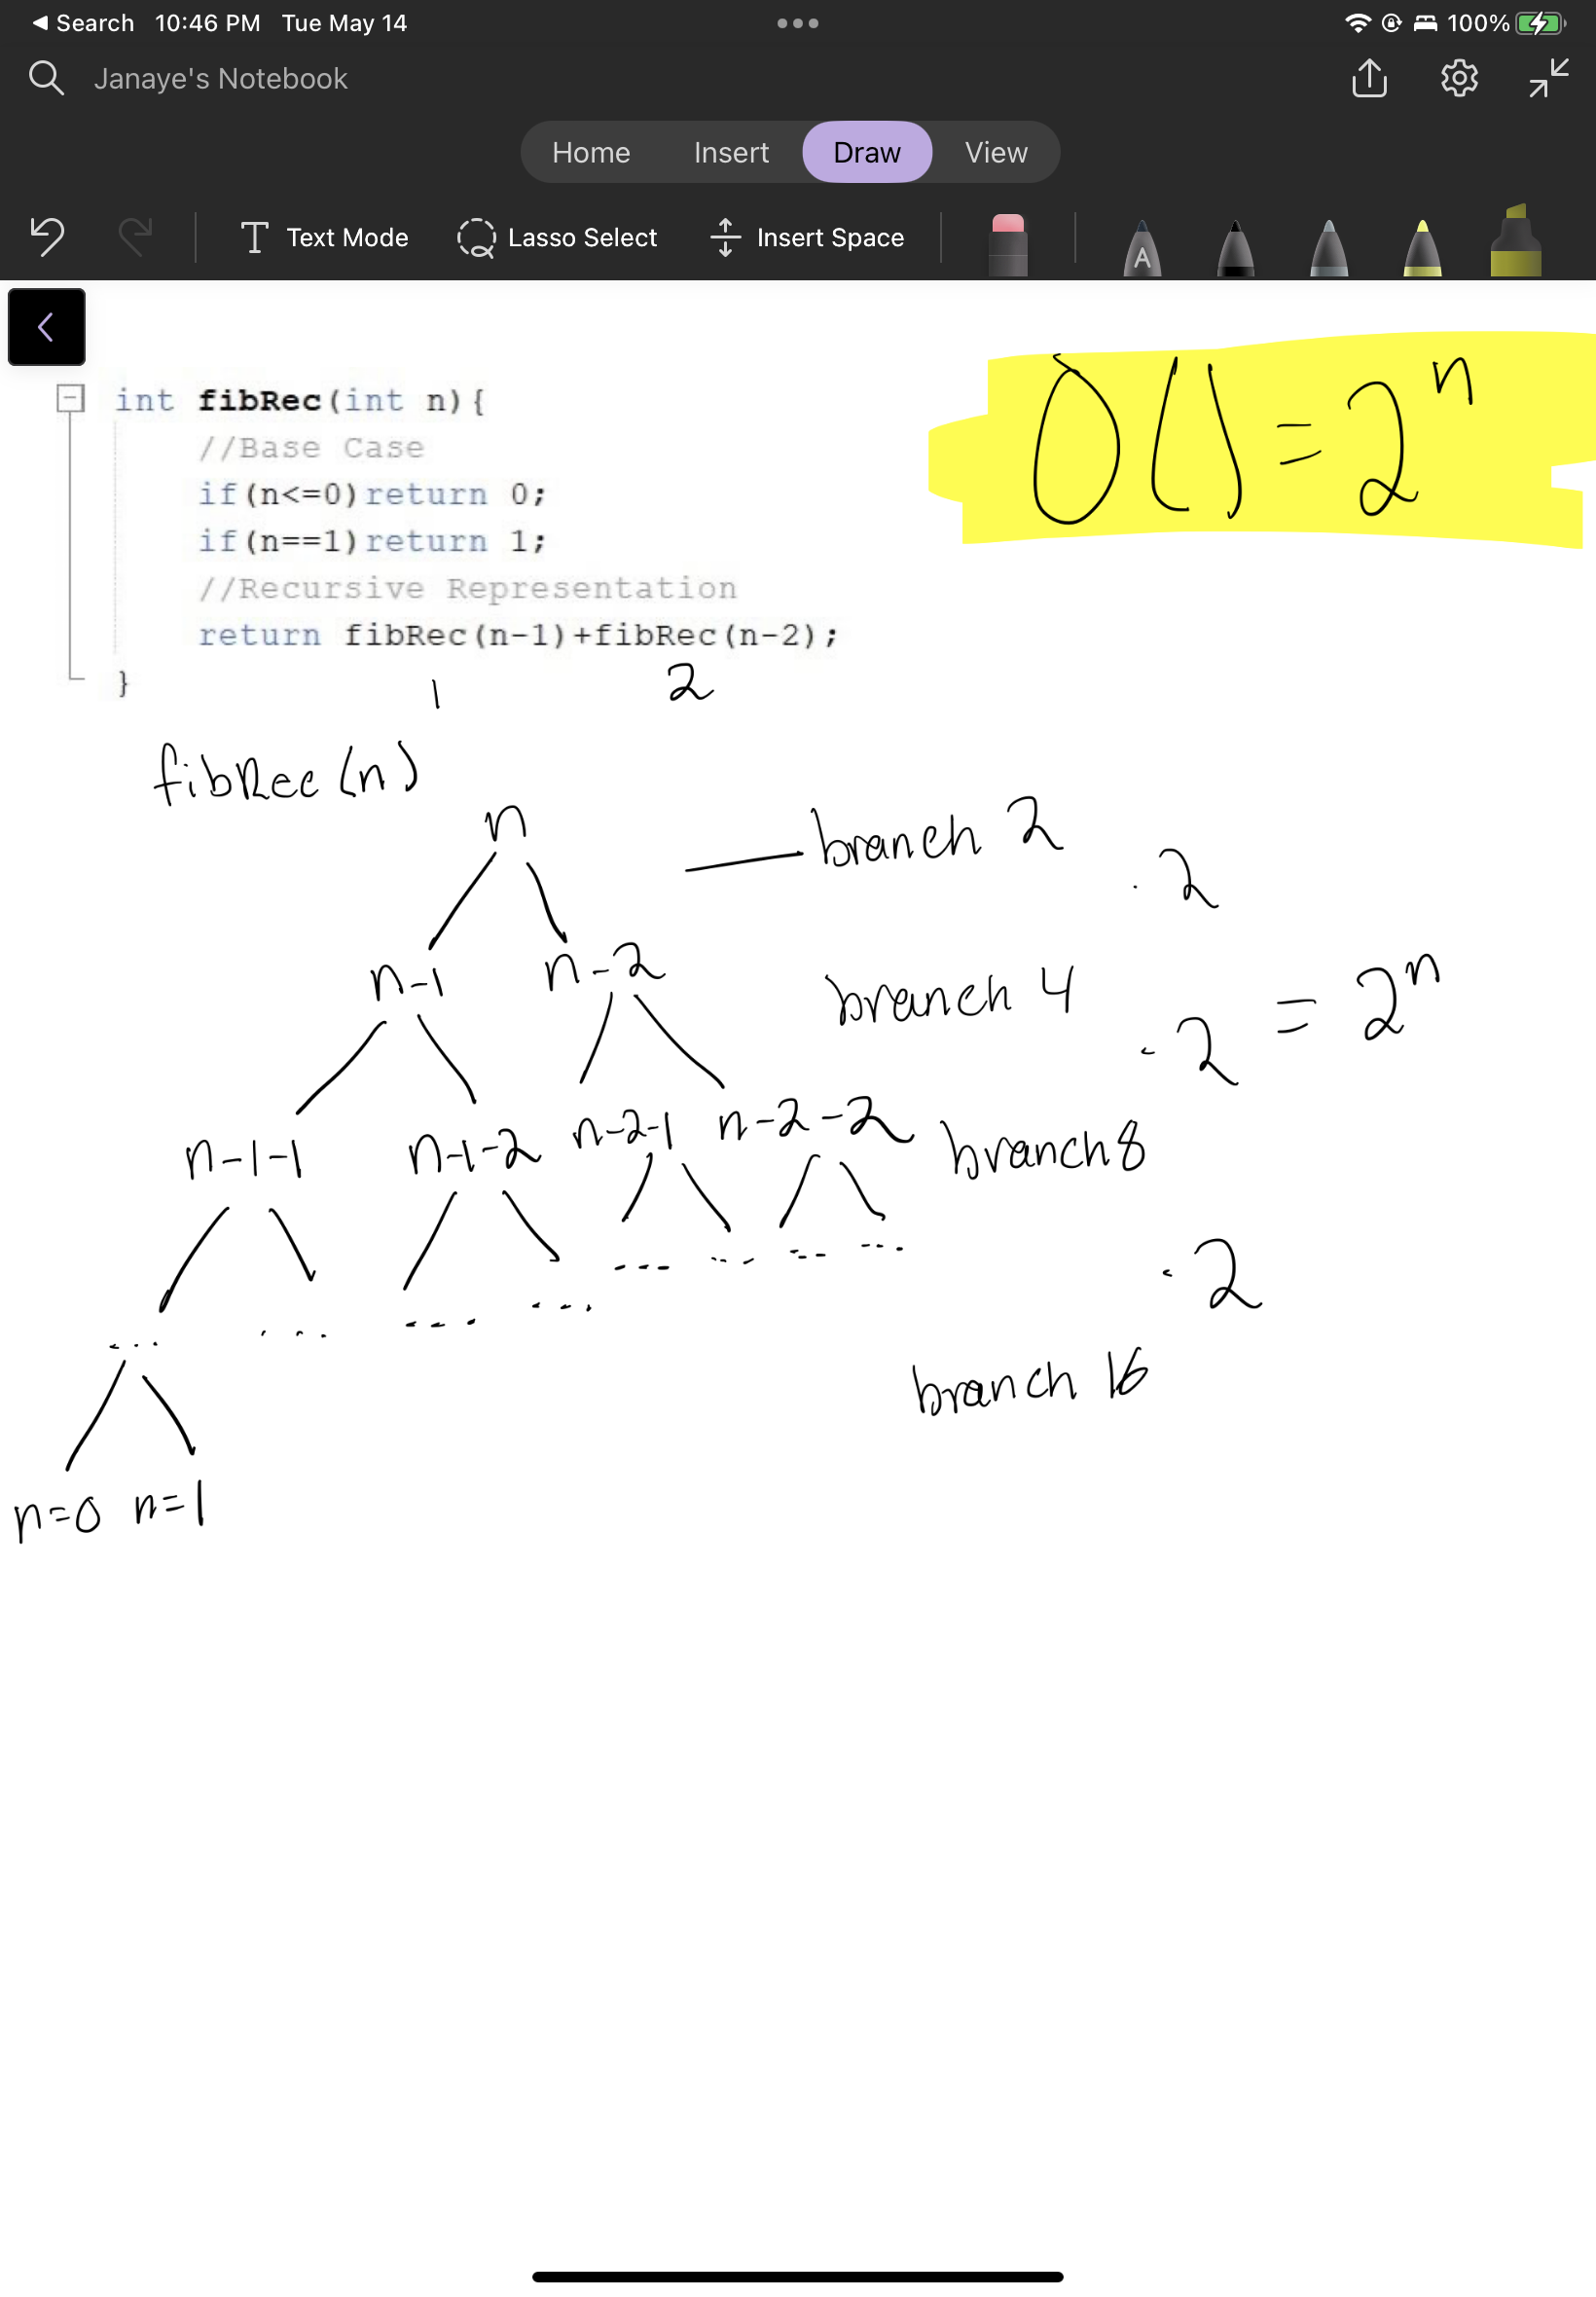 Search 10:46 PM Tue May 14 100%
Janaye's Notebook
Home Insert Draw View
T Text Mode Lasso Select Insert Space A
int fibRec(int n){
//Base Case
if(n<=0)return 0;
if(n==1)return 1;
//Recursive Representation
return fibRec(n-1)+fibRec(n-2);
}
O() = 2^n
1 2
fibRec(n)
n
branch 2
· 2
n-1 n-2
branch 4
· 2 = 2^n
n-1-1 n-1-2 n-2-1 n-2-2
branch 8
... ... ... ... ... ... ... ...
· 2
branch 16
n=0 n=1